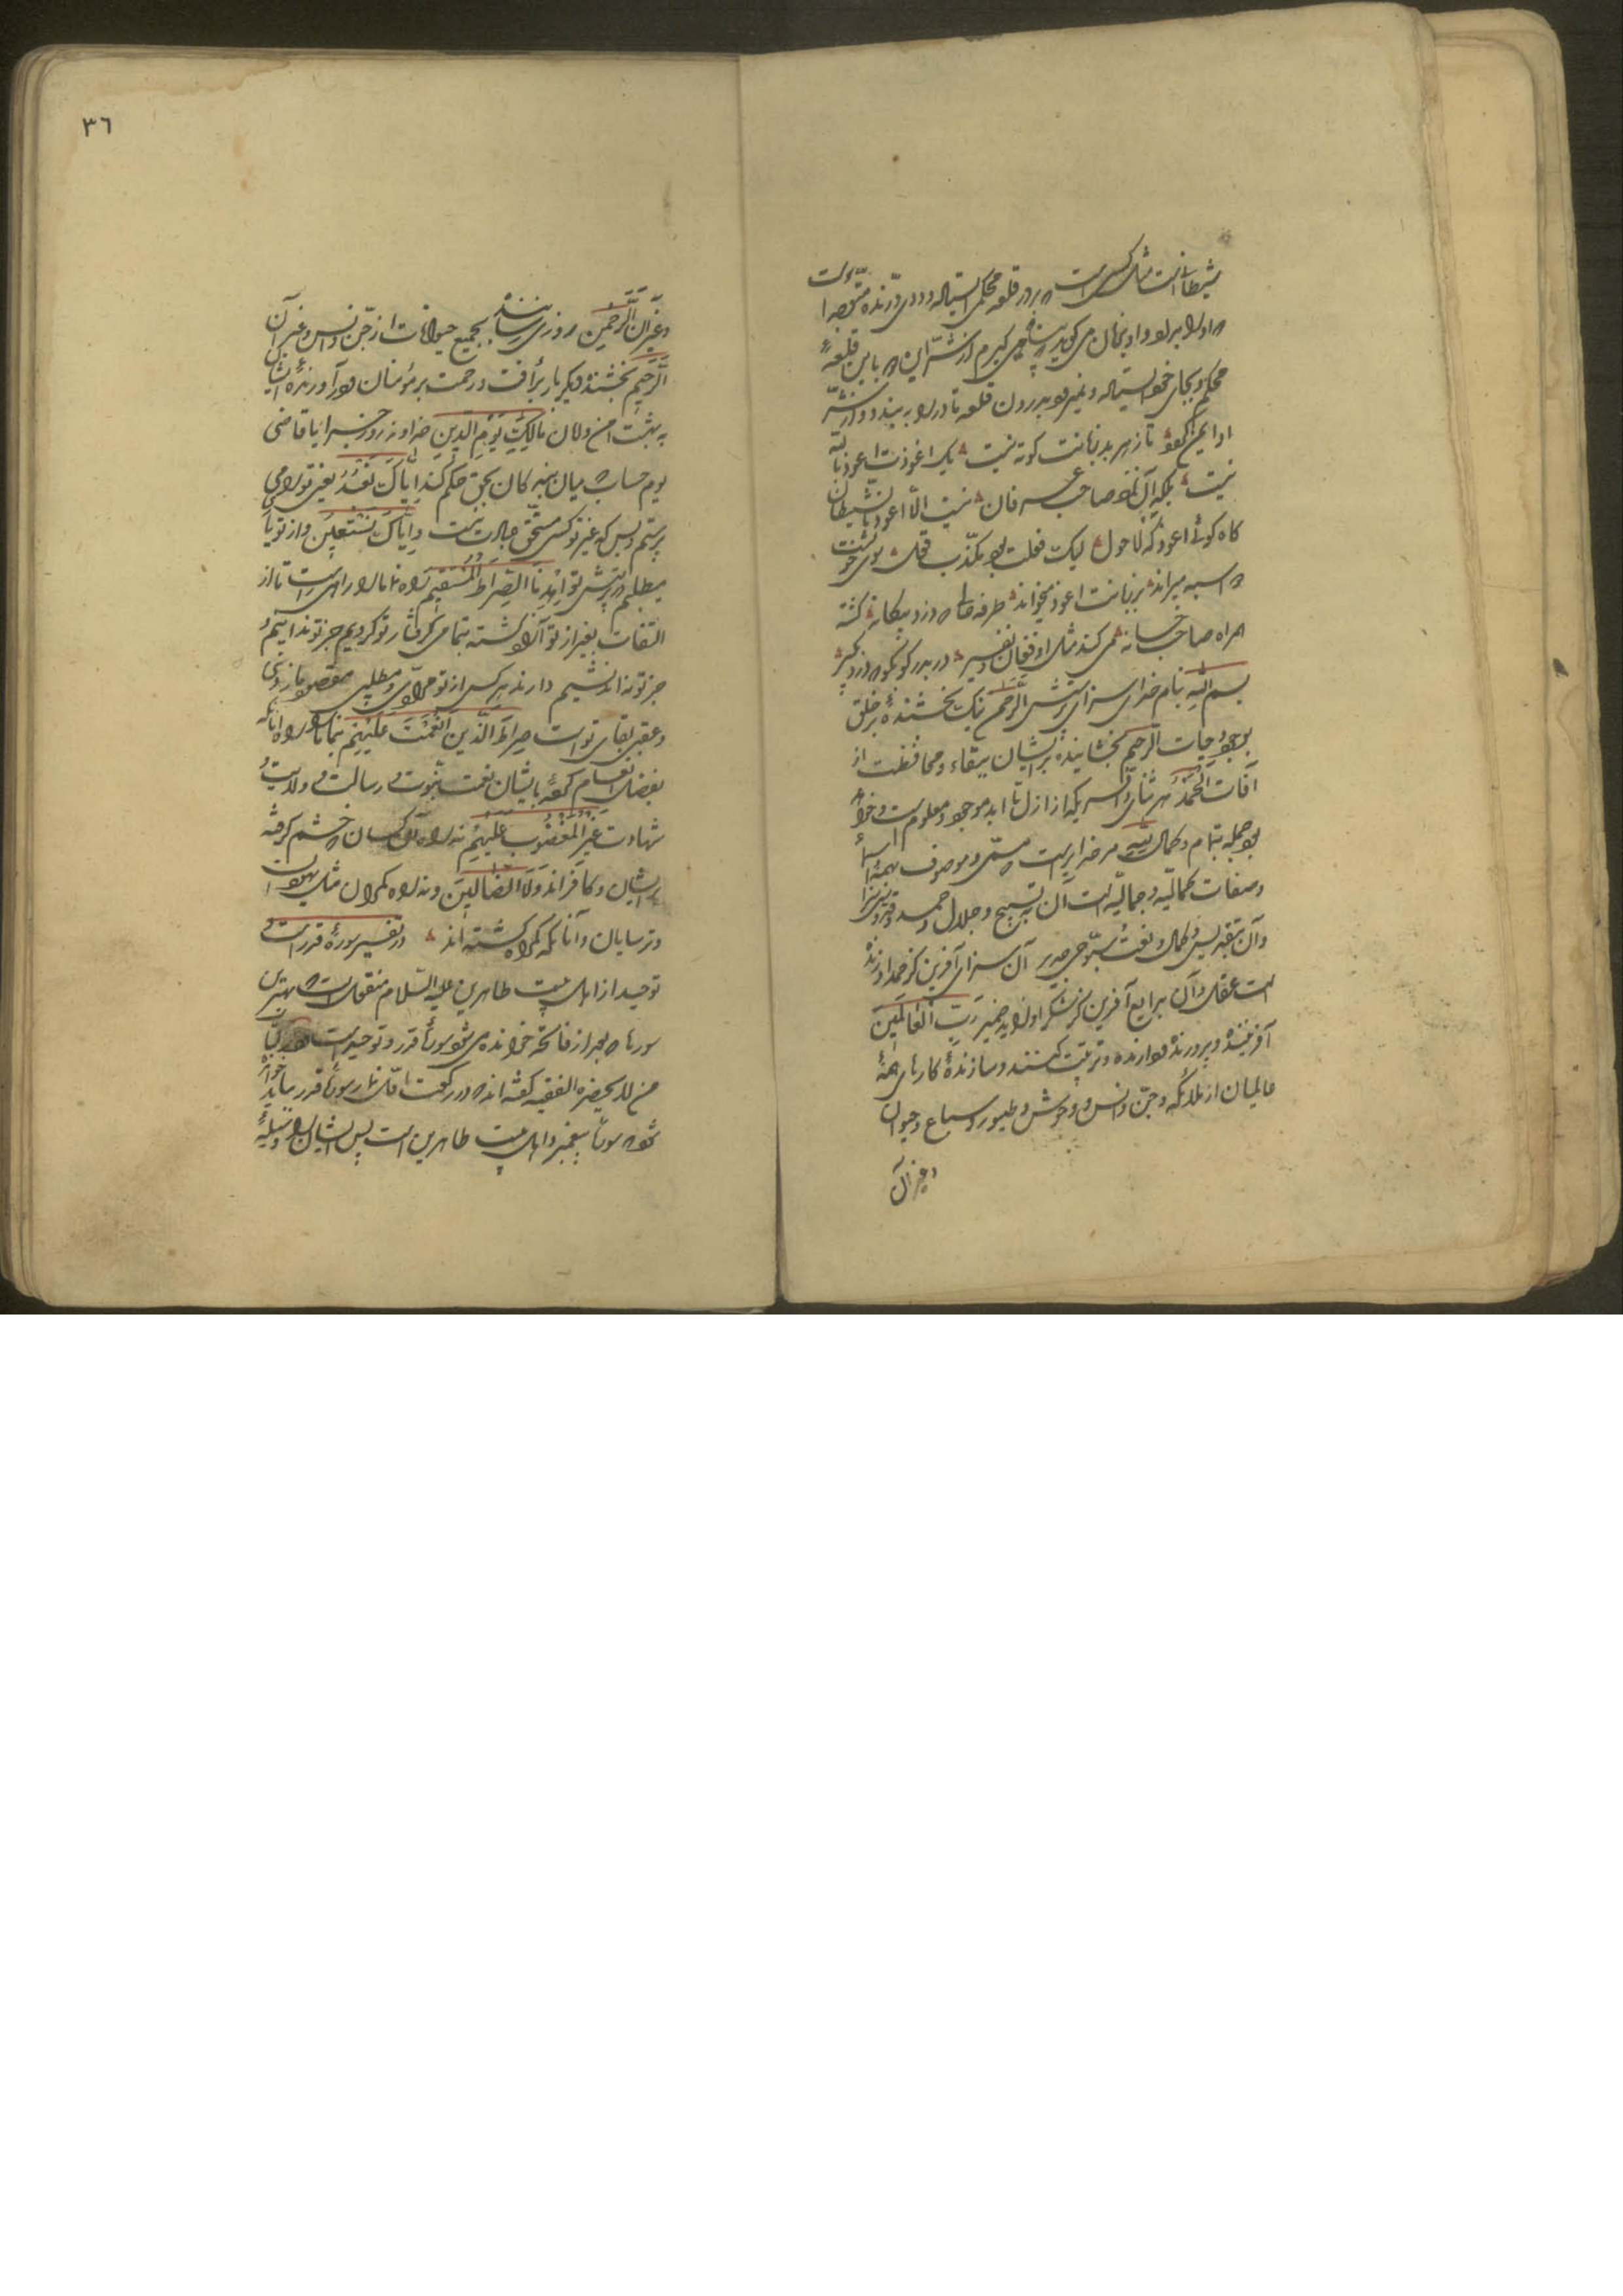 شیطانست مثل کسی است که بر در قلعه محکمی ایستاده و ددی درنده متوجه اوست
که او را بدرد و او بزبان می گوید پناه می گیرم از شر این که باین قلعهٔ
محکم و بجای خود ایستاده و نمیرود بدرون قلعه تا در را به بندد و از شر
او ایمن گردد تا ز هر بد زبانت کوته نیست یک اعوذت اعوذ بالله
نیست بلکه آن نزد صاحب عرفان نیست الا اعوذ بالشیطان
گاه گوئی اعوذ گه لاحول لیک فعلت بود مکذب قول سوی خویشت
دو اسبه میراند بر زبانت اعوذ میخواند طرفه حالی که دزد بیگانه گشته
همراه صاحب خانه می کند مثل او فغان و نفیر در بدر کو بکو که دزد بگیر
بسم الله بنام خدای سزای پرستش الرحمن نیک بخشندهٔ بر خلق
بوجود و حیات الرحیم بخشاینده بر ایشان ببقاء و محافظت از
آفات الحمد هر ثنائی و آفرینکه از ازل تا ابد موجود و معلوم است و خواهد
بود جمله بتمام و کمال لله مر خدایراست که مسمی و موصوف بهمهٔ اسما
و صفات کمالیه و جمالیه است آن به تسبیح و جلال و حمد
و آن بتقدیس و کمال و نعت سبوحی جدیر آن سزای آفرین کز حمد او زنده
است عقل و آن بدایع آفرین کز شکر او زاید ضمیر رب العالمین
آفریننده و پرورندهٔ دوارنده و تربیت کننده و سازندهٔ کارهای همهٔ
عالمیان از ملائکه و جن و انس و وحوش و طیور و سباع و حیوان
و غیر آن
٣٦
و غیر آن الرحمن روزی رسانندهٔ بجمیع حیوانات از جن و انس و غیر آن
الرحیم بخشندهٔ دیگر بار برأفت و رحمت بر مؤمنان و در آورندهٔ ایشان
به بهشت امن و امان مالک یوم الدین خداوند روز جزا یا قاضی
یوم حساب که میان بندگان بحق حکم کند ایاک نعبد یعنی تو را می
پرستم و بس که غیر تو کسی مستحق عبادت نیست و ایاک نستعین و از تو یاری
میطلبم در پرستش تو اهدنا الصراط المستقیم راه نما ما را راه راست تا از
التفات بغیر از تو آزاد گشته بتمامی گرفتار تو گردیم جز تو ندانیم و
جز تو نه اندیشیم دارند هر کس از تو مرادی و مطلبی مقصود ما ز دنیی
و عقبی بقای تو است صراط الذین انعمت علیهم بنما ما را راه آنانکه
بفضل انعام کردهٔ بایشان نعمت نبوت و رسالت و ولایت و
شهادت غیر المغضوب علیهم نه راه آن کسان که خشم گرفته
بر ایشان و کافراند ولا الضالین و نه راه گمراهان مثل یهودان
و ترسایان و آنانکه گمراه گشته اند در تفسیر سورهٔ قدر است و
توحید از اهل بیت طاهرین علیه السلام منقول است که بهترین
سورها که بعد از فاتحه خوانده می شود سورهٔ قدر و توحید است در کتاب
من لا یحضره الفقیه گفته اند که در رکعت اول نماز سورهٔ قدر بباید خواند
که سورهٔ پیغمبر و اهل بیت طاهرین است پس ایشان را وسیلهٔ